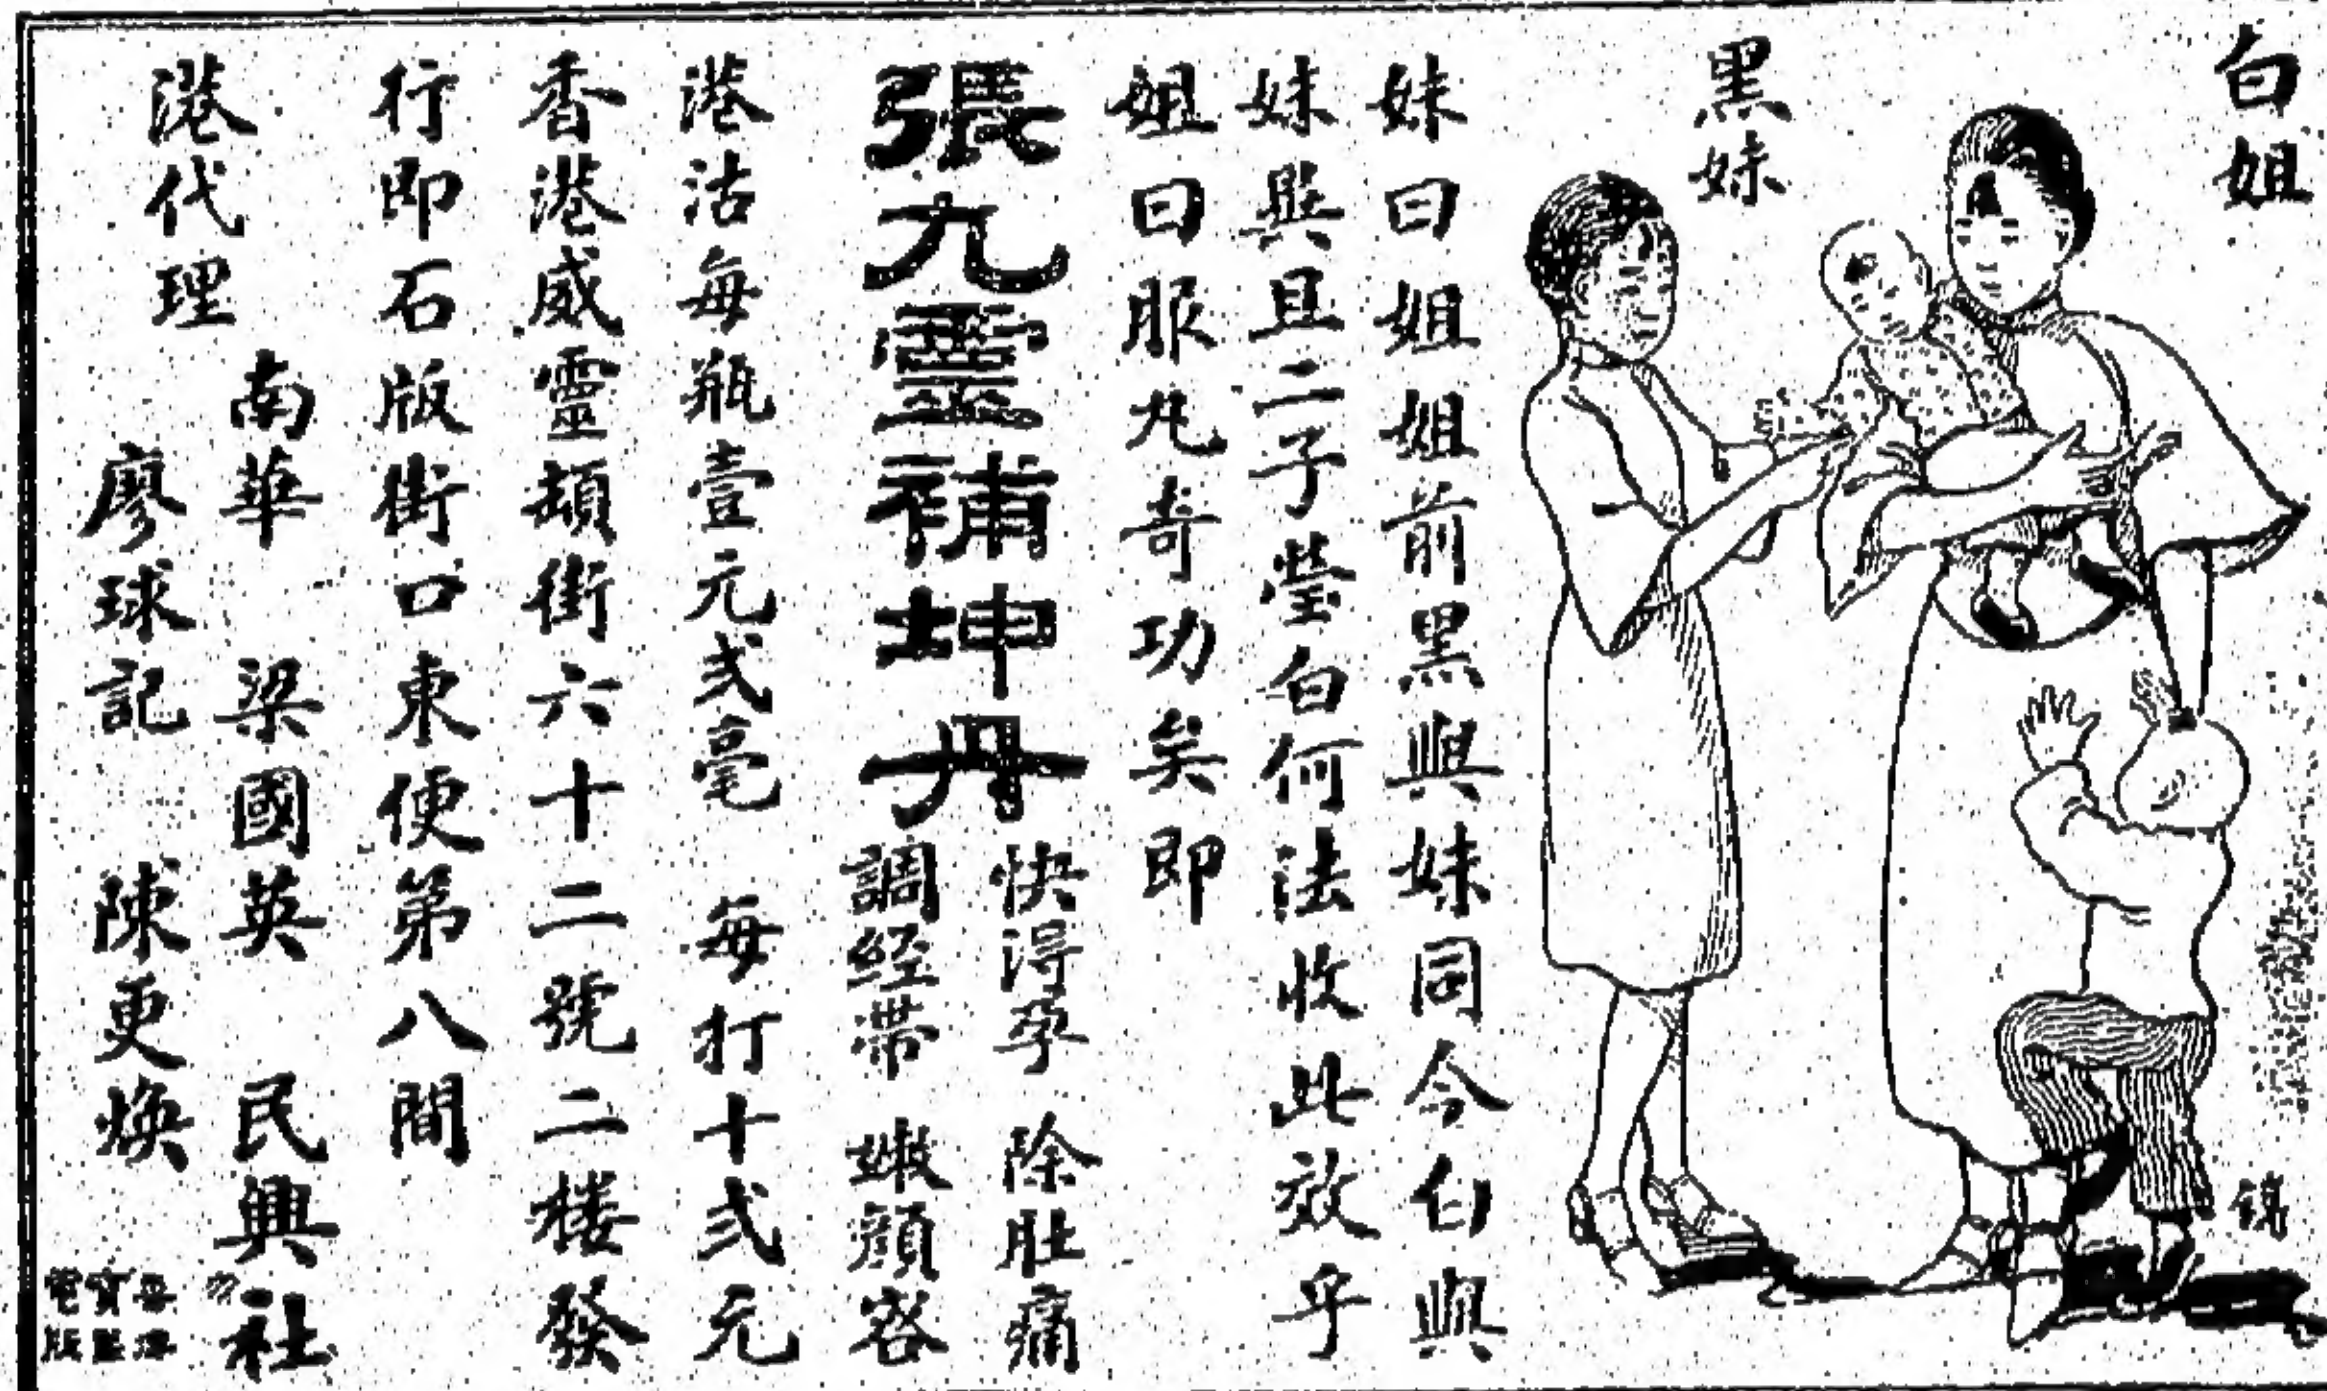 白姐
黑妹
妹曰姐姐前黑與妹同今白與
妹異且二子瑩白何法收此效乎
姐曰服丸奇功矣即
張九靈補坤丹
快得孕 除肚痛
調經帶 嫩顏容
港沽每瓶壹元弍毫 每打十弍元
香港威靈頓街六十二號二楼發
行即石版街口東便第八間
港代理
南華 梁國英 民興社
廖球記 陳更煥